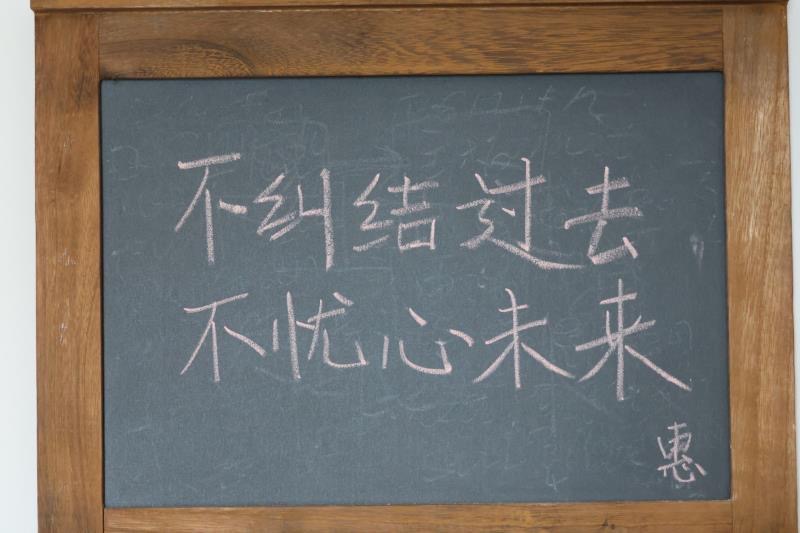 不纠结过去
不忧心未来
惠